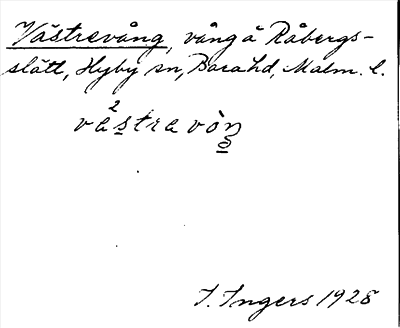 Västrevång, vång å Råbergs-
slätt, Hyby sn, Bara hd, Malm. l.
västravòn
I. Ingers 1928